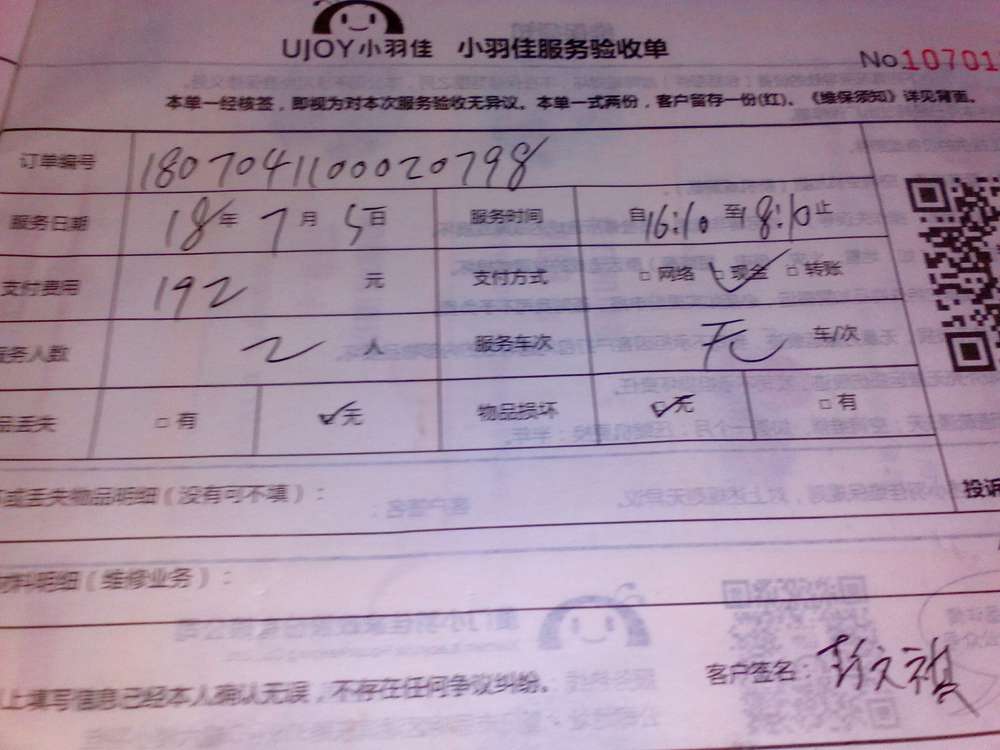 UJOY小羽佳 小羽佳服务验收单
No10701
本单一经核签，即视为对本次服务验收无异议。本单一式两份，客户留存一份(红)。《维保须知》详见背面。
订单编号 180704110002０798
服务日期 18年7月5日 服务时间 自16:10至18:10止
支付费用 192元 支付方式 □网络 □现金 □转账
服务人数 2人 服务车次 无 车/次
品丢失 □有 □无 物品损坏 □无 □有
或丢失物品明细（没有可不填）：
投诉
材料明细（维修业务）：
上填写信息已经本人确认无误，不存在任何争议纠纷。
客户签名：彭文祺